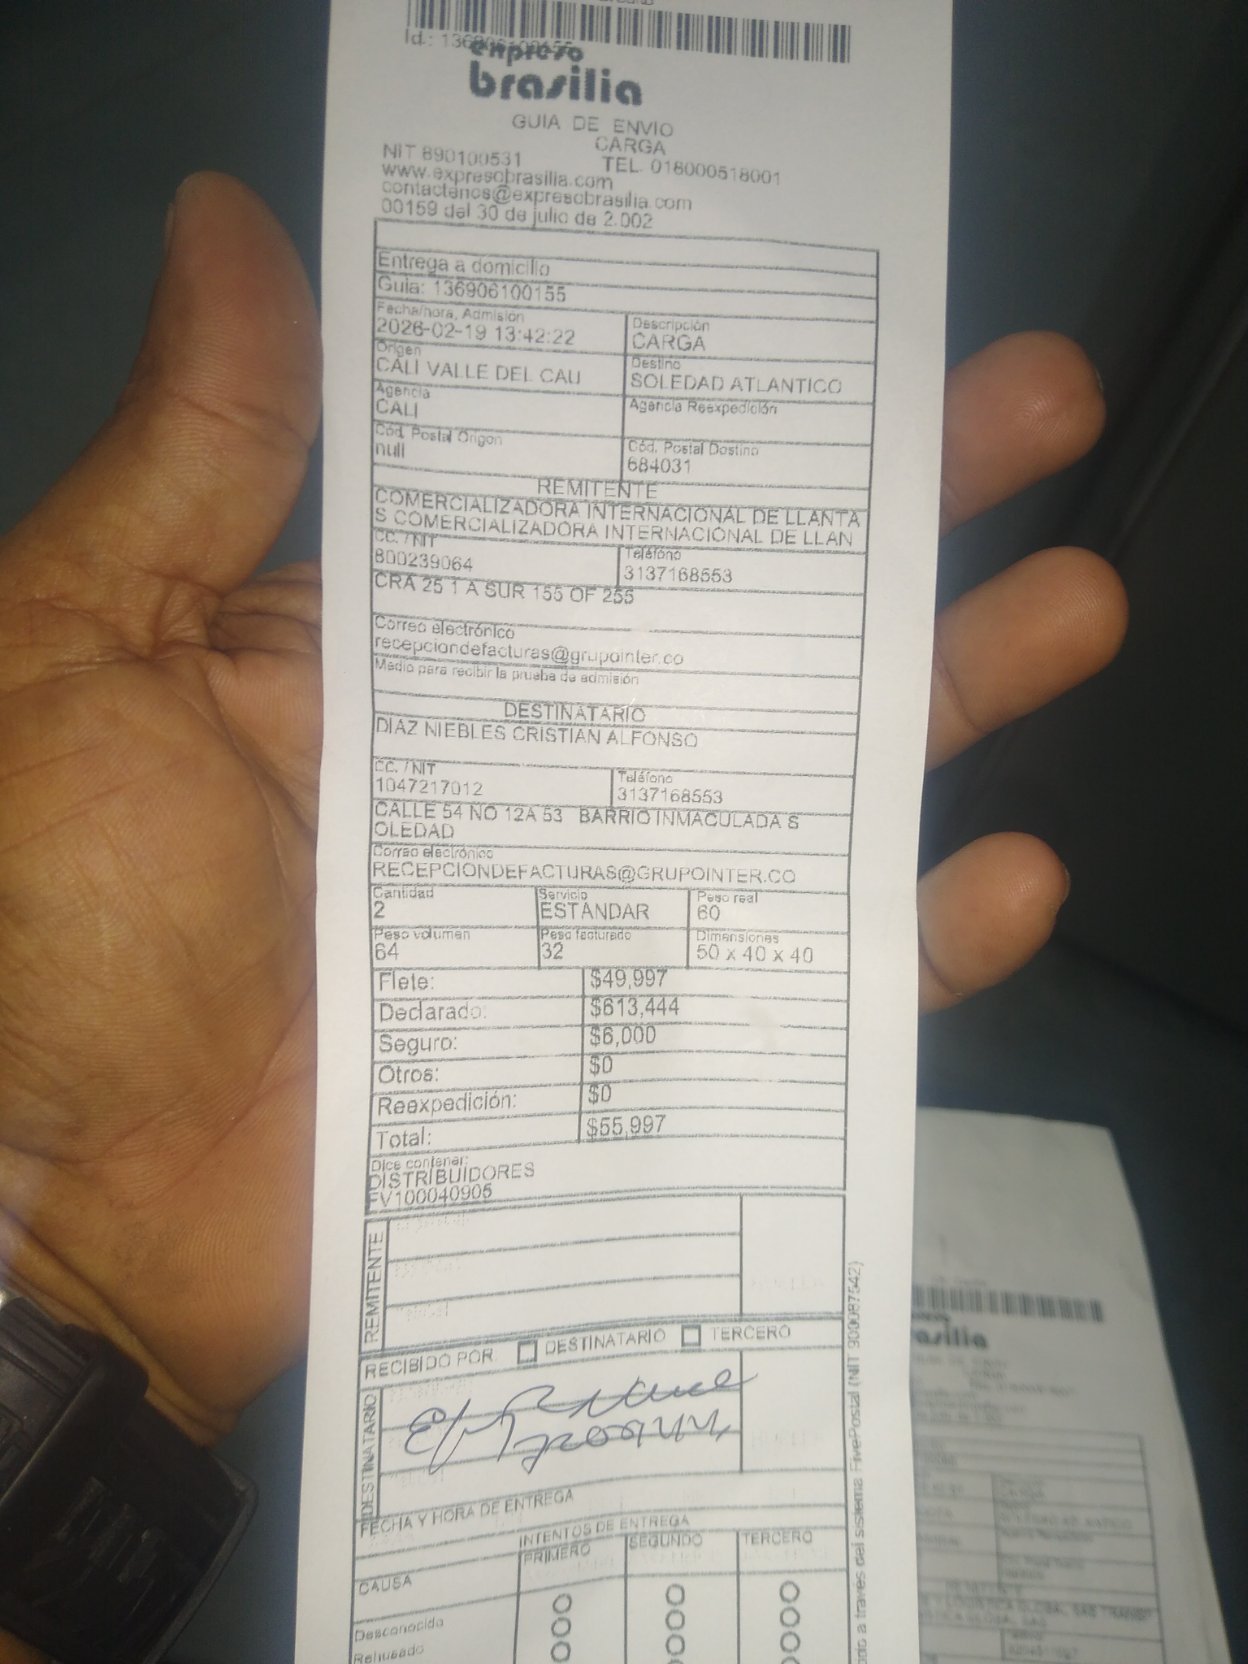 Id.: 136906100155
expreso
brasilia
GUIA DE ENVIO
CARGA
NIT 890100531 TEL. 018000518001
www.expresobrasilia.com
contactenos@expresobrasilia.com
00159 del 30 de julio de 2.002
Entrega a domicilio
Guia: 136906100155
Fecha/hora, Admisión
2026-02-19 13:42:22
Descripción
CARGA
Origen
CALI VALLE DEL CAU
Destino
SOLEDAD ATLANTICO
Agencia
CALI
Agencia Reexpedición
Cód. Postal Origen
null
Cód. Postal Destino
684031
REMITENTE
COMERCIALIZADORA INTERNACIONAL DE LLANTA
S COMERCIALIZADORA INTERNACIONAL DE LLAN
CC. /NIT
800239064
Teléfono
3137168553
CRA 25 1 A SUR 155 OF 255
Correo electrónico
recepciondefacturas@grupointer.co
Medio para recibir la prueba de admisión
DESTINATARIO
DIAZ NIEBLES CRISTIAN ALFONSO
CC. /NIT
1047217012
Teléfono
3137168553
CALLE 54 NO 12A 53 BARRIO INMACULADA S
OLEDAD
Correo electrónico
RECEPCIONDEFACTURAS@GRUPOINTER.CO
Cantidad
2
Servicio
ESTANDAR
Peso real
60
Peso volumen
64
Peso facturado
32
Dimensiones
50 x 40 x 40
Flete: $49,997
Declarado: $613,444
Seguro: $6,000
Otros: $0
Reexpedición: $0
Total: $55,997
Dice contener:
DISTRIBUIDORES
FV100040905
REMITENTE
RECIBIDO POR: DESTINATARIO TERCERO
DESTINATARIO
FECHA Y HORA DE ENTREGA
INTENTOS DE ENTREGA
CAUSA PRIMERO SEGUNDO TERCERO
Desconocido
Rehusado
a través del sistema FivePostal (NIT 900087542)